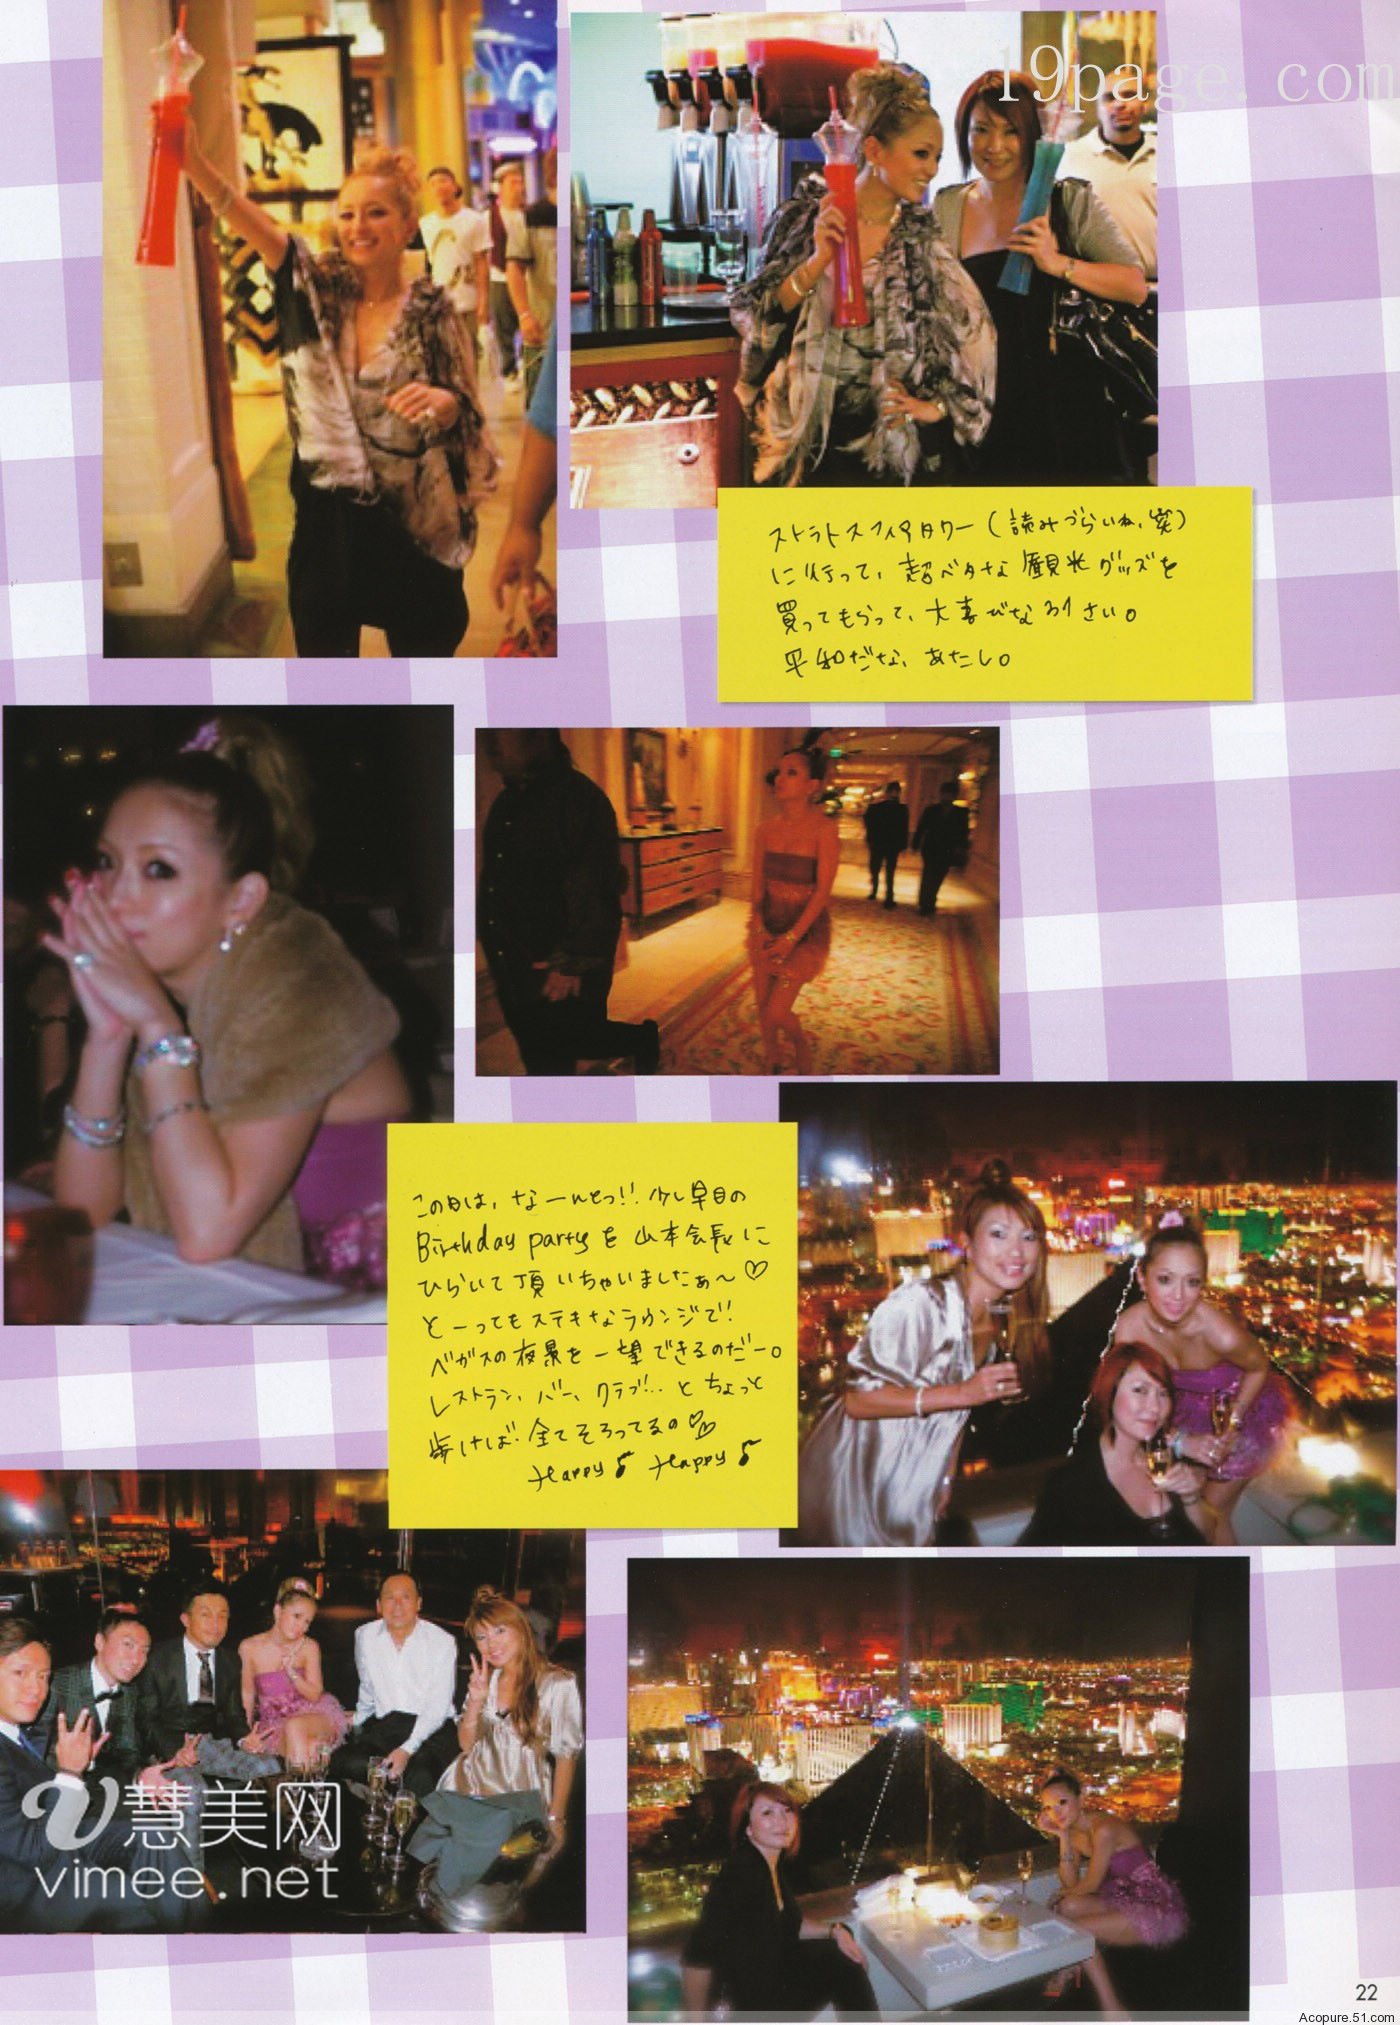 19page.com
ストラトスフィアタワー(読みづらいね、笑)
に行って、超ベタな観光グッズを
買ってもらって、大喜びなうりさい。
平和だな、あたし。
この日は、なーんとっ!!少し早目の
Birthday partyを山本会長に
ひらいて頂いちゃいましたぁ〜♡
とーってもステキなラウンジで!
ベガスの夜景を一望できるのだー。
レストラン、バー、クラブ!..とちょっと
歩けば全てそろってるの♡♡
Happy♪ Happy♪
慧美网
vimee.net
22
Acopure.51.com